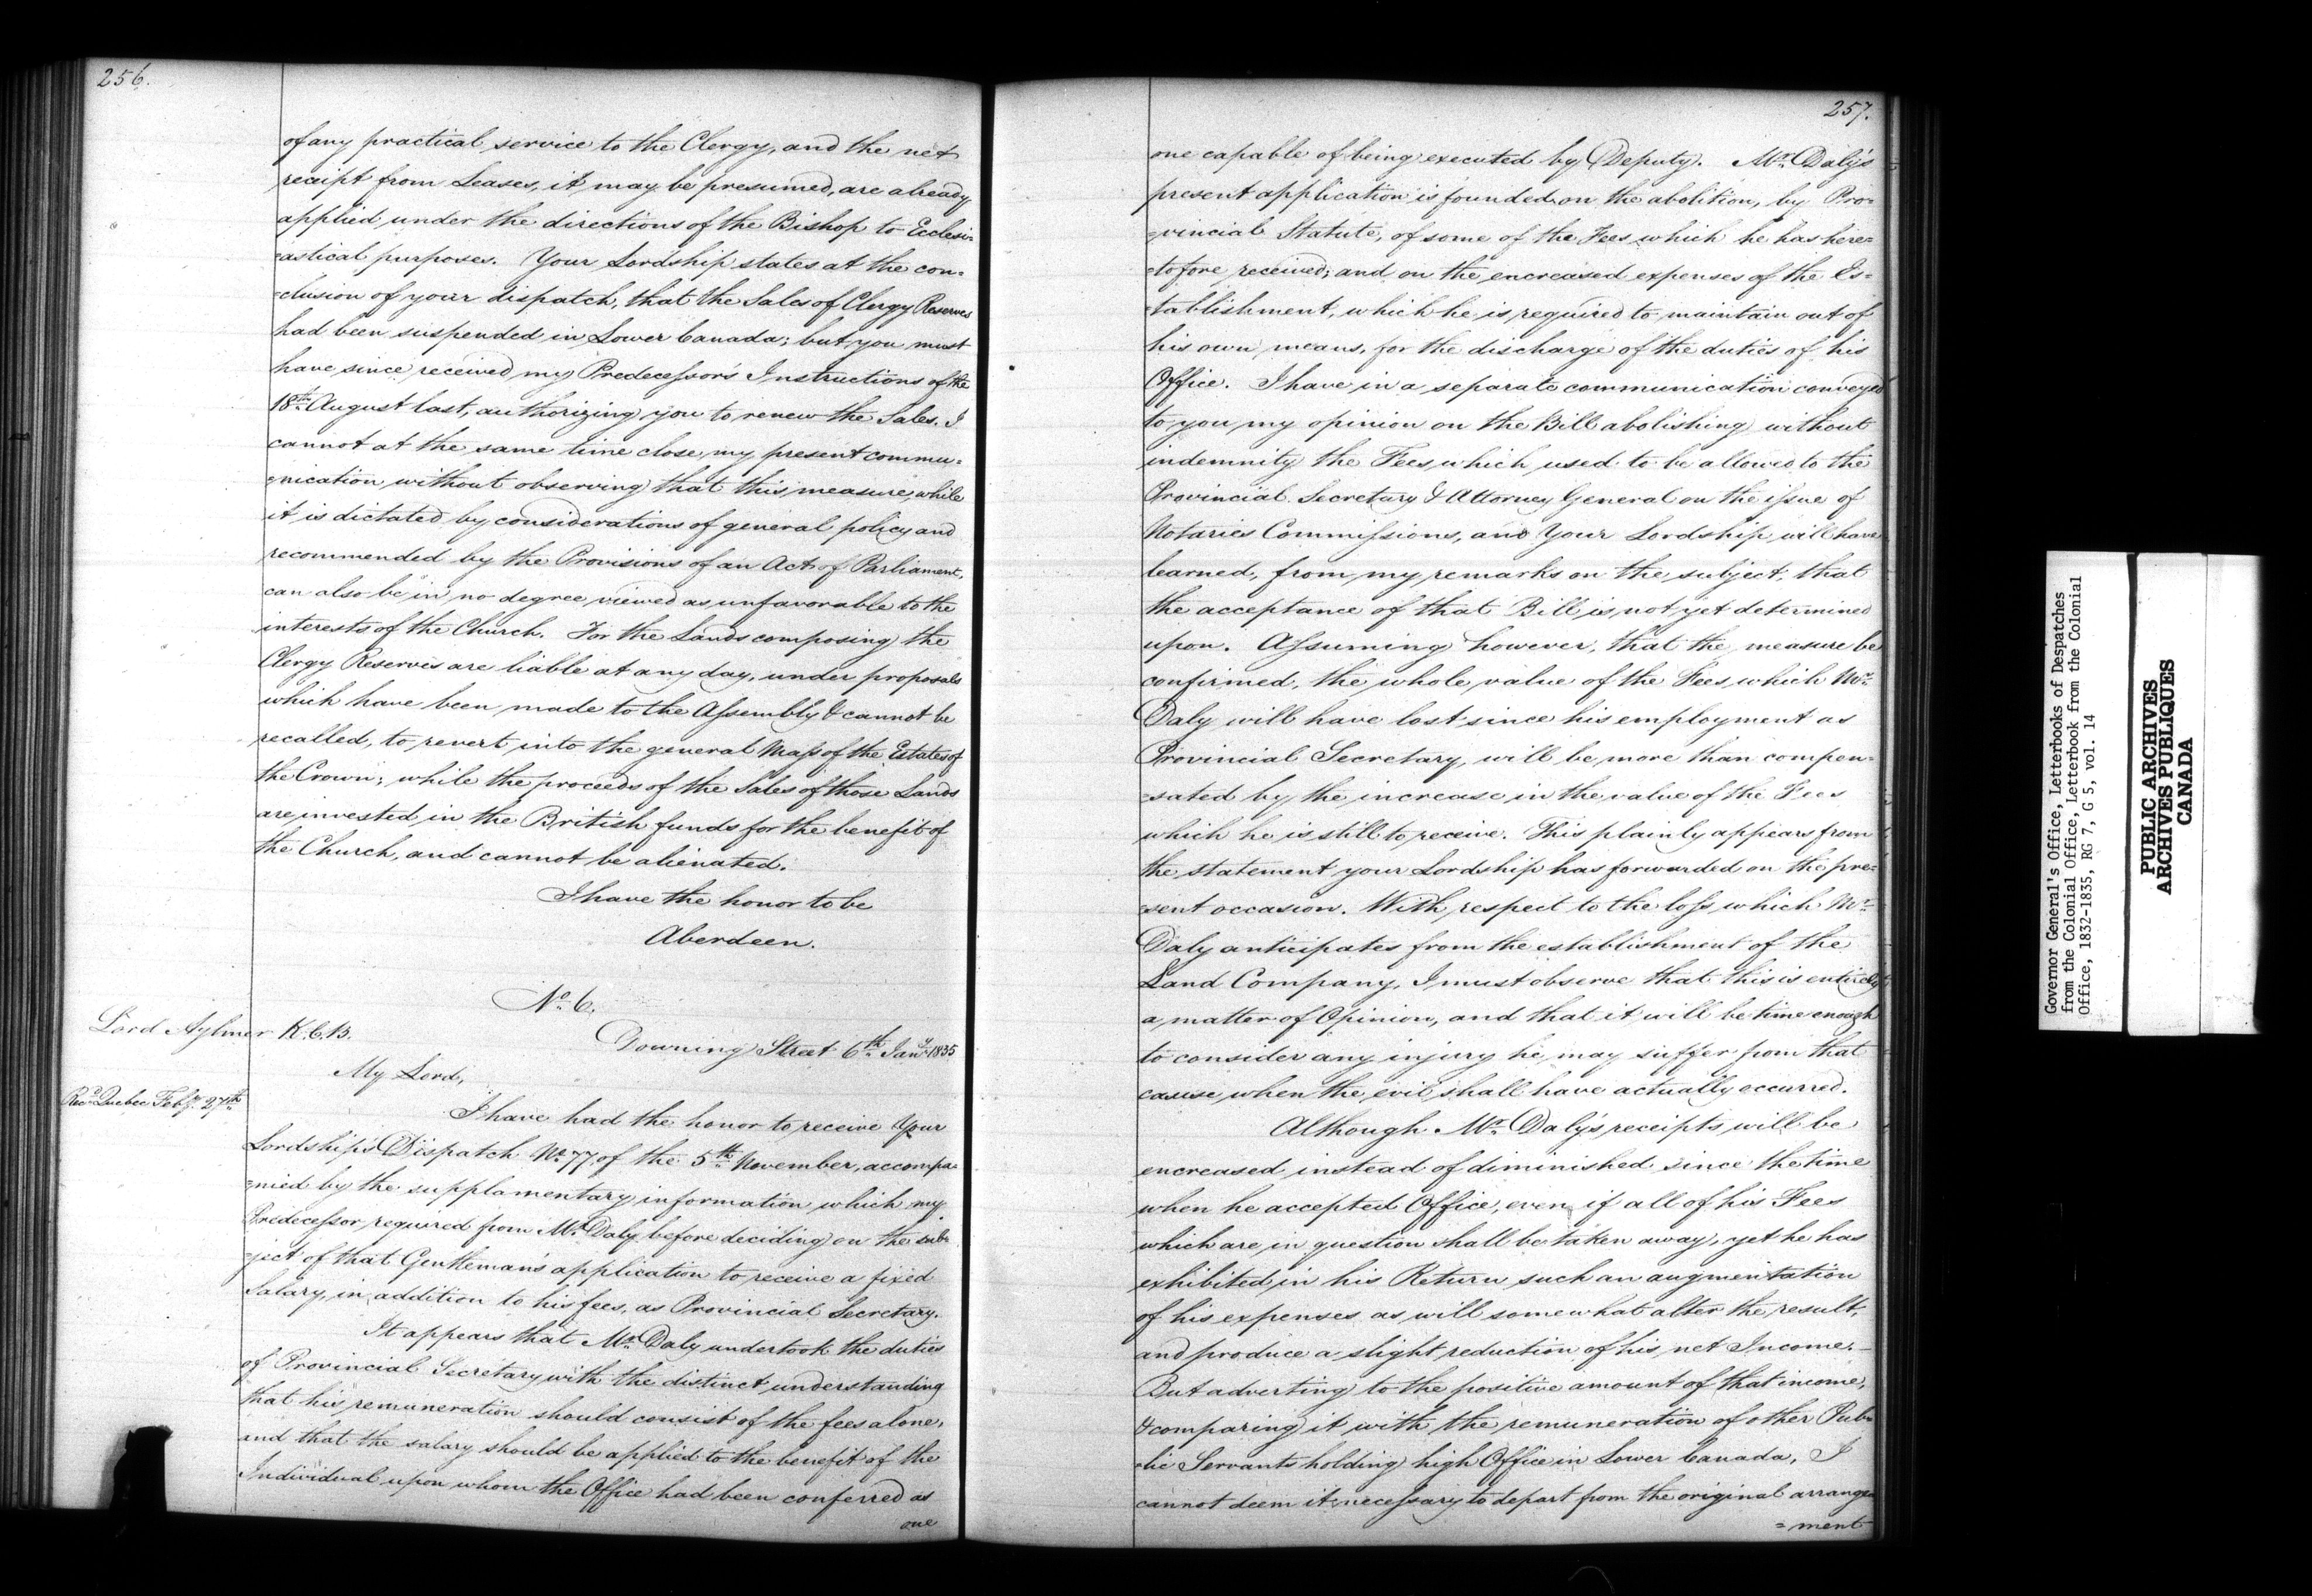 256.
of any practical service to the Clergy, and the net
receipt from Leases, it may be presumed, are already
applied under the directions of the Bishop to Ecclesi=
=astical purposes. Your Lordship states at the con=
=clusion of your dispatch, that the Sales of Clergy Reserves
had been suspended in Lower Canada; but you must
have since received my Predecessor's Instructions of the
18th August last, authorizing you to renew the Sales. I
cannot at the same time close my present commu=
=nication without observing that this measure, while
it is dictated by considerations of general policy and
recommended by the Provisions of an Act of Parliament,
can also be in no degree viewed as unfavorable to the
interests of the Church. For the Lands composing the
Clergy Reserves are liable at any day, under proposals
which have been made to the Assembly & cannot be
recalled, to revert into the general Mass of the Estates of
the Crown; while the proceeds of the Sales of those Lands
are invested in the British funds for the benefit of
the Church, and cannot be alienated.
I have the honor to be
Aberdeen.
No. 6.
Lord Aylmer K.C.B.
Downing Street 6th Jany 1835
My Lord,
Recd Quebec Feby 27th
I have had the honor to receive Your
Lordship's Dispatch No. 77 of the 5th November, accompa=
=nied by the supplamentary information which my
Predecessor required from Mr. Daly before deciding on the sub=
=ject of that Gentleman's application to receive a fixed
Salary, in addition to his fees, as Provincial Secretary.
It appears that Mr. Daly undertook the duties
of Provincial Secretary with the distinct understanding
that his remuneration should consist of the fees alone,
and that the salary should be applied to the benefit of the
Individual upon whom the Office had been conferred as
one
257.
one capable of being executed by Deputy. Mr. Daly's
present application is founded on the abolition, by Pro=
=vincial Statute, of some of the Fees which he has here=
=tofore received; and on the encreased expenses of the Es=
=tablishment, which he is required to maintain out of
his own means, for the discharge of the duties of his
Office. I have in a separate communication conveyed
to you my opinion on the Bill abolishing without
indemnity the Fees which used to be allowed to the
Provincial Secretary & Attorney General on the issue of
Notaries Commissions, and Your Lordship will have
learned, from my remarks on the subject, that
the acceptance of that Bill is not yet determined
upon. Assuming however, that the measure be
confirmed, the whole value of the Fees which Mr.
Daly will have lost since his employment as
Provincial Secretary, will be more than compen=
=sated by the increase in the value of the Fees
which he is still to receive. This plainly appears from
the statement your Lordship has forwarded on the pre=
=sent occasion. With respect to the loss which Mr.
Daly anticipates from the establishment of the
Land Company, I must observe that this is entirely
a matter of Opinion, and that it will be time enough
to consider any injury he may suffer from that
cause when the evil shall have actually occurred.
Although Mr. Daly's receipts will be
encreased instead of diminished since the time
when he accepted Office, even if all of his Fees
which are in question shall be taken away, yet he has
exhibited in his Return such an augmentation
of his expenses as will somewhat alter the result,
and produce a slight reduction of his net Income.
But adverting to the positive amount of that income,
& comparing it with the remuneration of other Pub=
=lic Servants holding high Office in Lower Canada, I
cannot deem it necessary to depart from the original arrange
=ment
Governor General's Office, Letterbooks of Despatches
from the Colonial Office, Letterbook from the Colonial
Office, 1832-1835, RG 7, G 5, vol. 14
PUBLIC ARCHIVES
ARCHIVES PUBLIQUES
CANADA